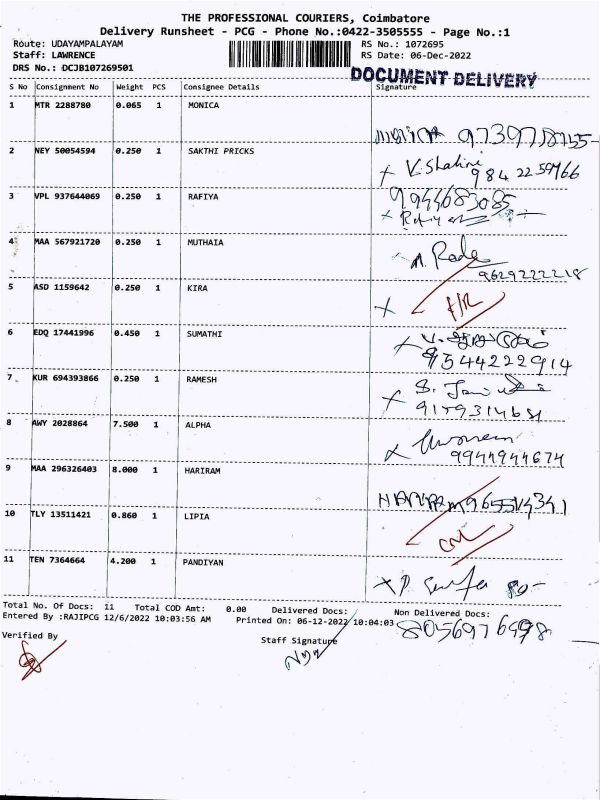 THE PROFESSIONAL COURIERS, Coimbatore
Delivery Runsheet - PCG - Phone No.:0422-3505555 - Page No.:1
Route: UDAYAMPALAYAM RS No.: 1072695
Staff: LAWRENCE RS Date: 06-Dec-2022
DRS No.: DCJB107269501
DOCUMENT DELIVERY
S No Consignment No Weight PCS Consignee Details Signature
1 MTR 2288780 0.065 1 MONICA
2 NEY 50054594 0.250 1 SAKTHI PRICKS
V.Shalini
3 VPL 937644069 0.250 1 RAFIYA
9944683085
4 MAA 567921720 0.250 1 MUTHAIA
9629222218
5 ASD 1159642 0.250 1 KIRA
6 EDQ 17441996 0.450 1 SUMATHI
9544222914
7 KUR 694393866 0.250 1 RAMESH
8 AWY 2028864 7.500 1 ALPHA
9944944674
9 MAA 296326403 8.000 1 HARIRAM
10 TLY 13511421 0.860 1 LIPIA
11 TEN 7364664 4.200 1 PANDIYAN
Total No. Of Docs: 11 Total COD Amt: 0.00 Delivered Docs: Non Delivered Docs:
Entered By :RAJIPCG 12/6/2022 10:03:56 AM Printed On: 06-12-2022 10:04:03
8056976498
Verified By Staff Signature